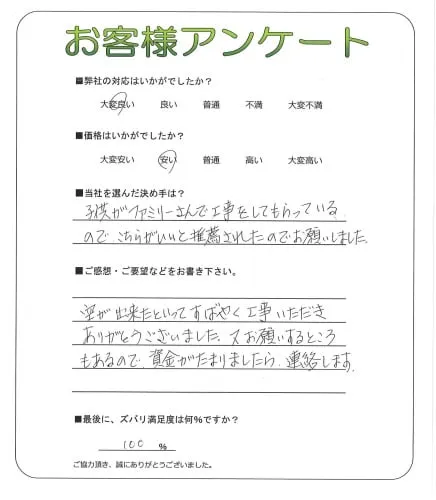 お客様アンケート
■弊社の対応はいかがでしたか？
大変良い 良い 普通 不満 大変不満
■価格はいかがでしたか？
大変安い 安い 普通 高い 大変高い
■当社を選んだ決め手は？
子供がファミリーさんで工事をしてもらっている
ので、こちらがいいと推薦されたのでお願いしました。
■ご感想・ご要望などをお書き下さい。
空が出来たといってすばやく工事いただき
ありがとうございました。又お願いするところ
もあるので、資金がたまりましたら、連絡します。
■最後に、ズバリ満足度は何%ですか？
100 %
ご協力頂き、誠にありがとうございました。